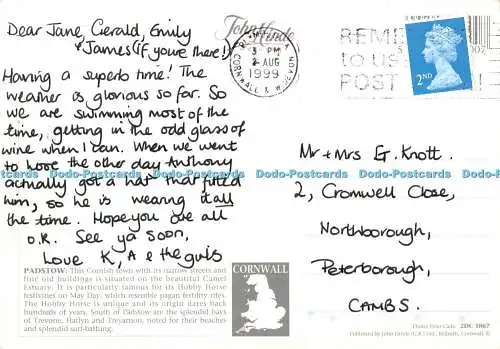 Dear Jane, Gerald, Emily
& James (if you're there!)
Having a superb time! The
weather is glorious so far. So
we are swimming most of the
time, getting in the odd glass of
wine when I can. When we went
to the other day Anthony
actually got a hat that fitted
him, so he is wearing it all
the time. Hope you are all
o.k. See ya soon,
Love K, A & the girls
PADSTOW: This Cornish town with its narrow streets and
fine old buildings is situated on the beautiful Camel
Estuary. It is particularly famous for its Hobby Horse
festivities on May Day, which resemble pagan fertility rites.
The Hobby Horse is unique and its origin dates back
hundreds of years. South of Padstow are the splendid bays
of Trevone, Harlyn and Treyarnon, noted for their beaches
and splendid surf-bathing.
CORNWALL
John Hinde
3 PM
2 AUG
1999
CORNWALL & DEVON
REME
to us
POST
2ND
Mr + Mrs G. Knott.
2, Cromwell Close,
Northborough,
Peterborough,
CAMBS.
Dodo-Postcards Dodo-Postcards Dodo-Postcards Dodo-Postcards
Published by John Hinde (U.K.) Ltd., Redruth, Cornwall.